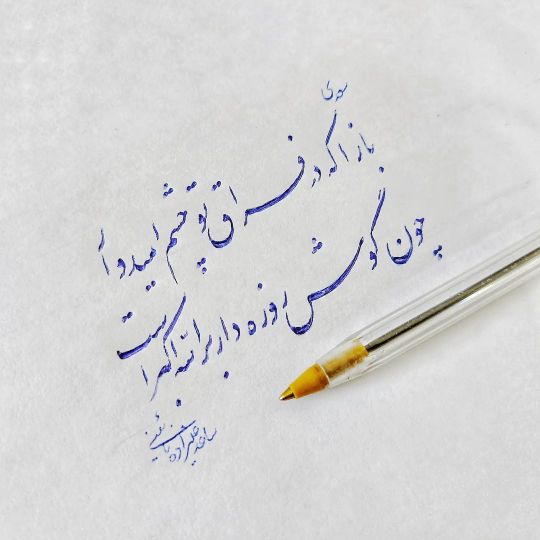 سعدی
باز آ که در فراق تو چشم امیدوار
چون گوش روزه دار بر الله اکبر است
ساعد علیزاده